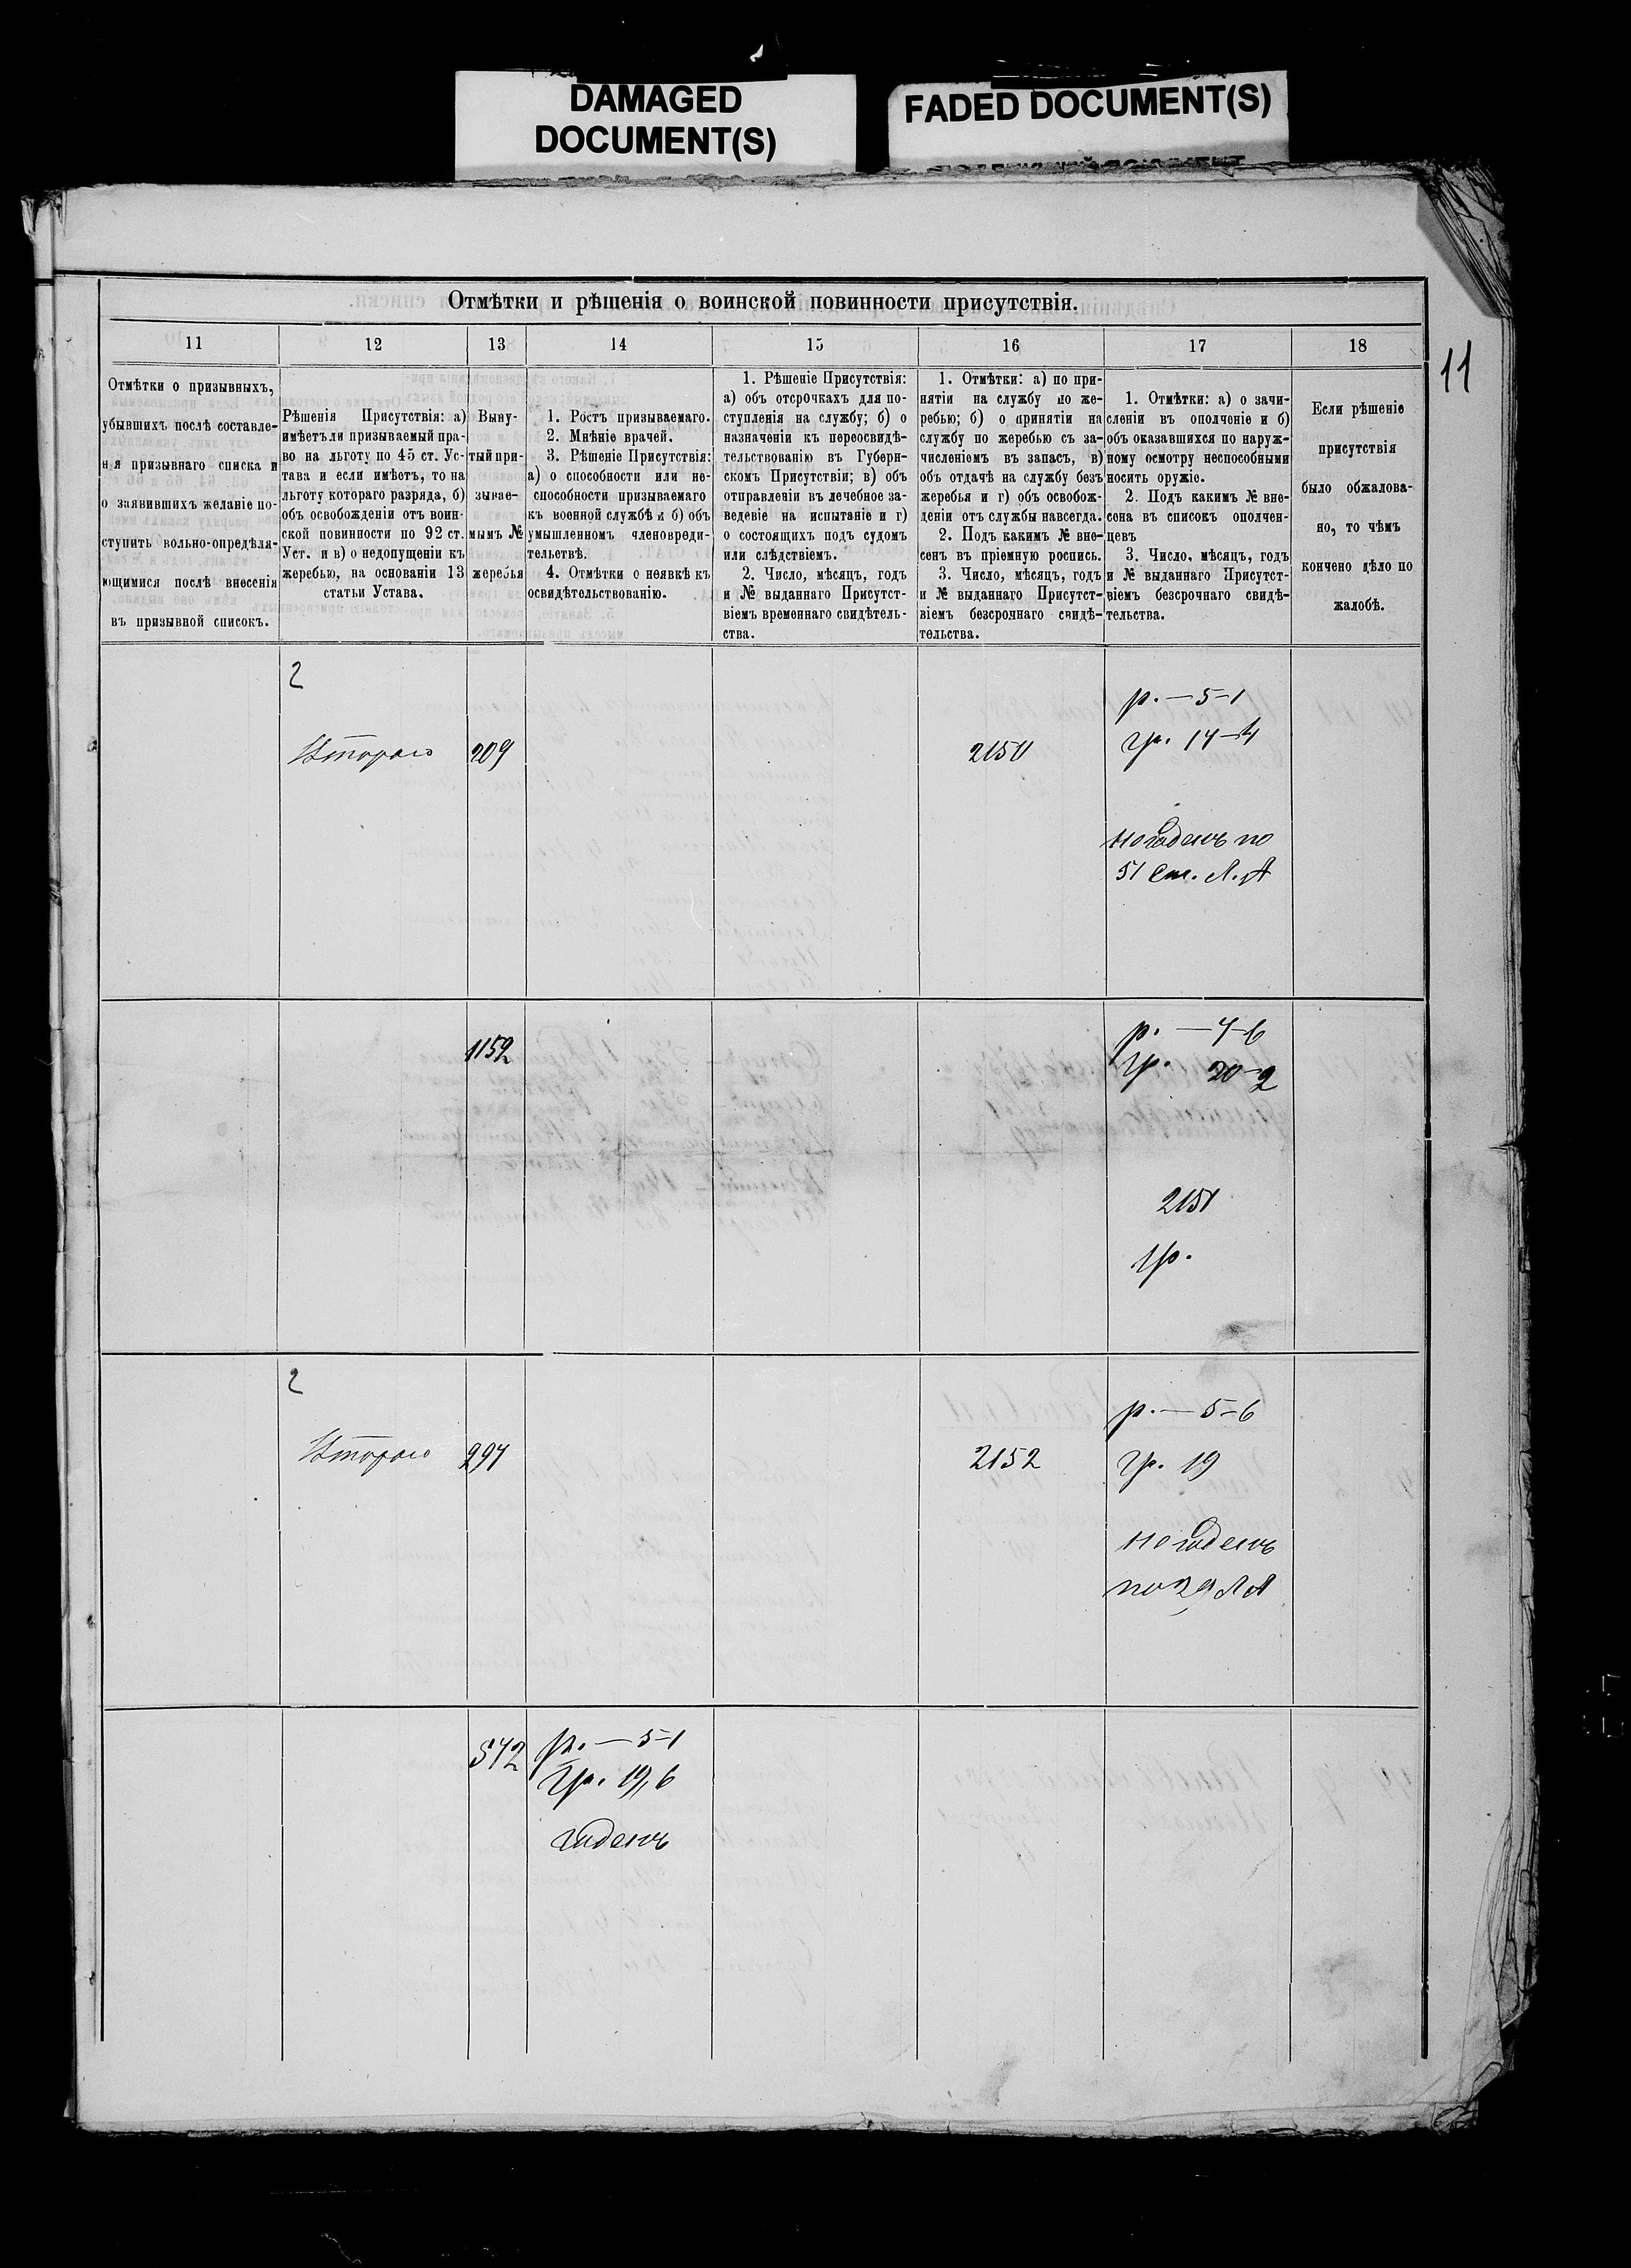 DAMAGED
DOCUMENT(S)
FADED DOCUMENT(S)
11
Отмѣтки и рѣшенія о воинской повинности присутствія.
11
Отмѣтки о призывныхъ,
убывшихъ послѣ составле-
нія призывнаго списка и
о заявившихъ желаніе по-
ступить вольно-опредѣля-
ющимися послѣ внесенія
въ призывной списокъ.
12
Рѣшенія Присутствія: а)
имѣетъ ли призываемый пра-
во на льготу по 45 ст. Ус-
тава и если имѣетъ, то на
льготу котораго разряда, б)
объ освобожденіи отъ воин-
ской повинности по 92 ст.
Уст. и в) о недопущеніи къ
жеребью, на основаніи 13
статьи Устава.
13
Выну-
тый при-
зывае-
мымъ №
жеребья
14
1. Ростъ призываемаго.
2. Мнѣніе врачей.
3. Рѣшеніе Присутствія:
а) о способности или не-
способности призываемаго
къ военной службѣ и б) объ
умышленномъ членовреди-
тельствѣ.
4. Отмѣтки о неявкѣ къ
освидѣтельствованію.
15
1. Рѣшеніе Присутствія:
а) объ отсрочкахъ для по-
ступленія на службу; б) о
назначеніи къ переосвидѣ-
тельствованію въ Губерн-
скомъ Присутствіи; в) объ
отправленіи въ лечебное за-
веденіе на испытаніе и г)
о состоящихъ подъ судомъ
или слѣдствіемъ.
2. Число, мѣсяцъ, годъ
и № выданнаго Присутст-
віемъ временнаго свидѣтель-
ства.
16
1. Отмѣтки: а) по при-
нятіи на службу по же-
ребью; б) о принятіи на
службу по жеребью съ за-
численіемъ въ запасъ, в)
объ отдачѣ на службу безъ
жеребья и г) объ освобож-
деніи отъ службы навсегда.
2. Подъ какимъ № вне-
сенъ въ пріемную роспись.
3. Число, мѣсяцъ, годъ
и № выданнаго Присутст-
віемъ безсрочнаго свидѣ-
тельства.
17
1. Отмѣтки: а) о зачи-
сленіи въ ополченіе и б)
объ оказавшихся по наруж-
ному осмотру неспособными
носить оружіе.
2. Подъ какимъ № вне-
сена въ списокъ ополчен-
цевъ
3. Число, мѣсяцъ, годъ
и № выданнаго Присутст-
віемъ безсрочнаго свидѣ-
тельства.
18
Если рѣшеніе
присутствія
было обжалова-
но, то чѣмъ
кончено дѣло по
жалобѣ.
2
Втораго
209
2150
р. — 5-1
гр. 17-4
негоденъ по
51 ст. Л. А
1152
р. — 4-6
гр. 20-2
2151
гр.
2
Втораго
297
2152
р. — 5-6
гр. 19
негоденъ
по 29 Л А
572
р. — 5-1
гр. 19,6
годенъ